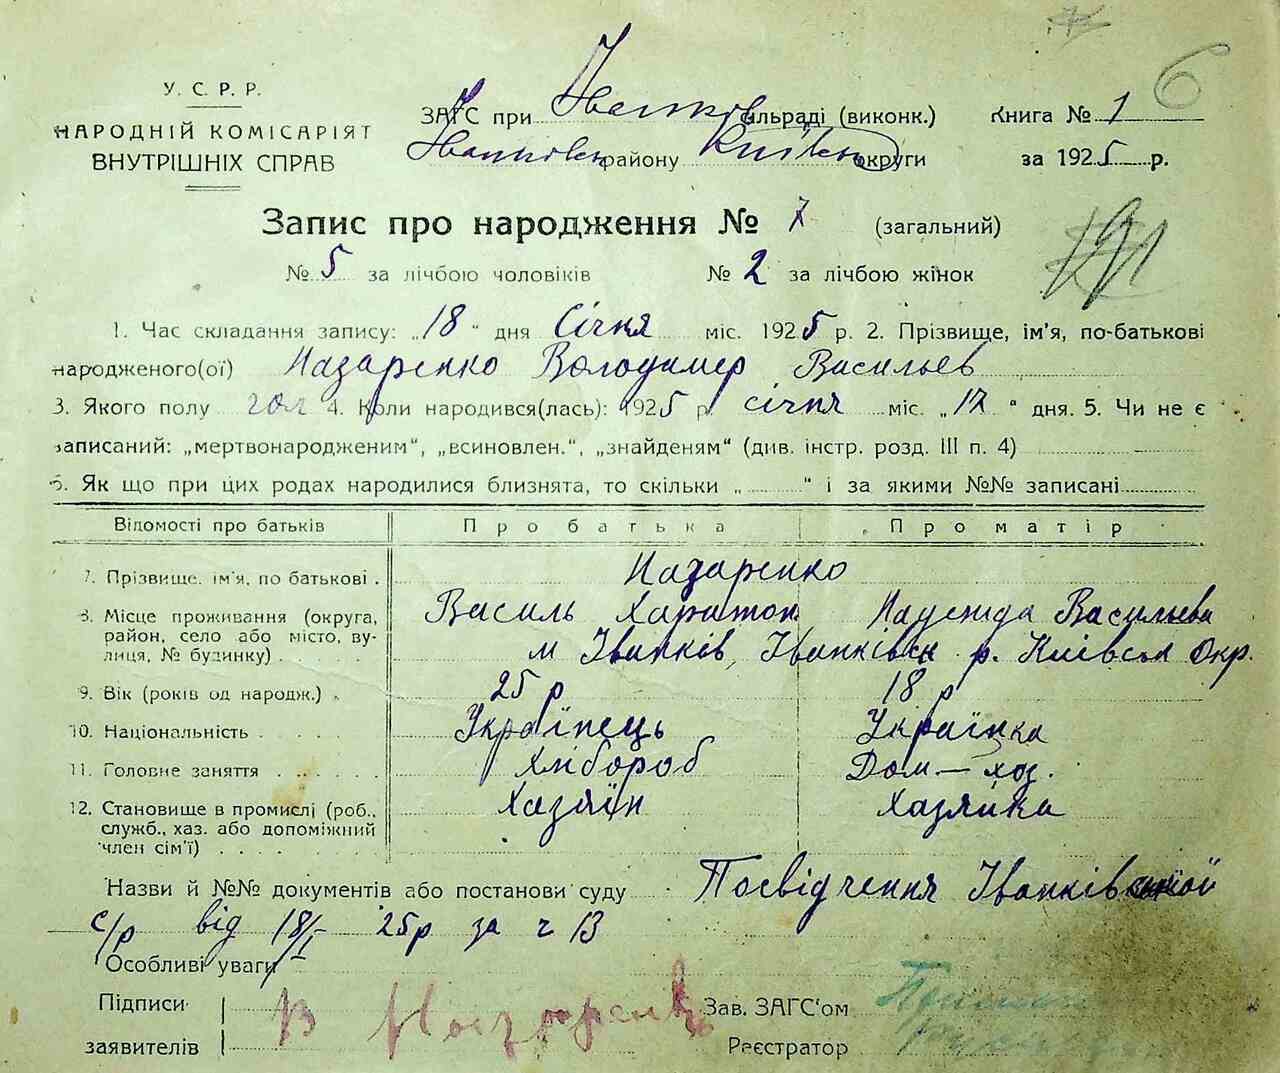 6
У. С. Р. Р.
НАРОДНІЙ КОМІСАРІЯТ
ВНУТРІШНІХ СПРАВ
ЗАГС при Іванков сільраді (виконк.)
Іванковськ району Київськ округи
Книга № 1
за 1925 р.
Запис про народження № 7 (загальний)
№ 5 за лічбою чоловіків № 2 за лічбою жінок
191
1. Час складання запису: „18“ дня Січня міс. 1925 р. 2. Прізвище, ім'я, по-батькові
народженого(ої) Назаренко Володимер Васильев
3. Якого полу чол 4. Коли народився(лась): 1925 р. січня міс. „12“ дня. 5. Чи не є
записаний: „мертвонародженим“, „всиновлен.“, „знайденям“ (див. інстр. розд. III п. 4)
6. Як що при цих родах народилися близнята, то скільки „ “ і за якими №№ записані
Відомості про батьків Про батька Про матір
7. Прізвище, ім'я, по батькові. Назаренко
Василь Харитон Надежда Васильева
8. Місце проживання (округа, район, село або місто, вулиця, № будинку) м Іванків, Іванківськ р. Київськ Окр.
9. Вік (років од народж.) 25 р 18 р
10. Національність Українець Українка
11. Головне заняття Хлібороб Дом-хоз.
12. Становище в промислі (роб., служб., хаз. або допоміжний член сім'ї) Хазяїн Хазяйка
Назви й №№ документів або постанови суду Посвідчення Іванківської
с/р від 18/I 25р за ч 13
Особливі уваги
Підписи
заявителів
В Назаренко
Зав. ЗАГС'ом
Реєстратор